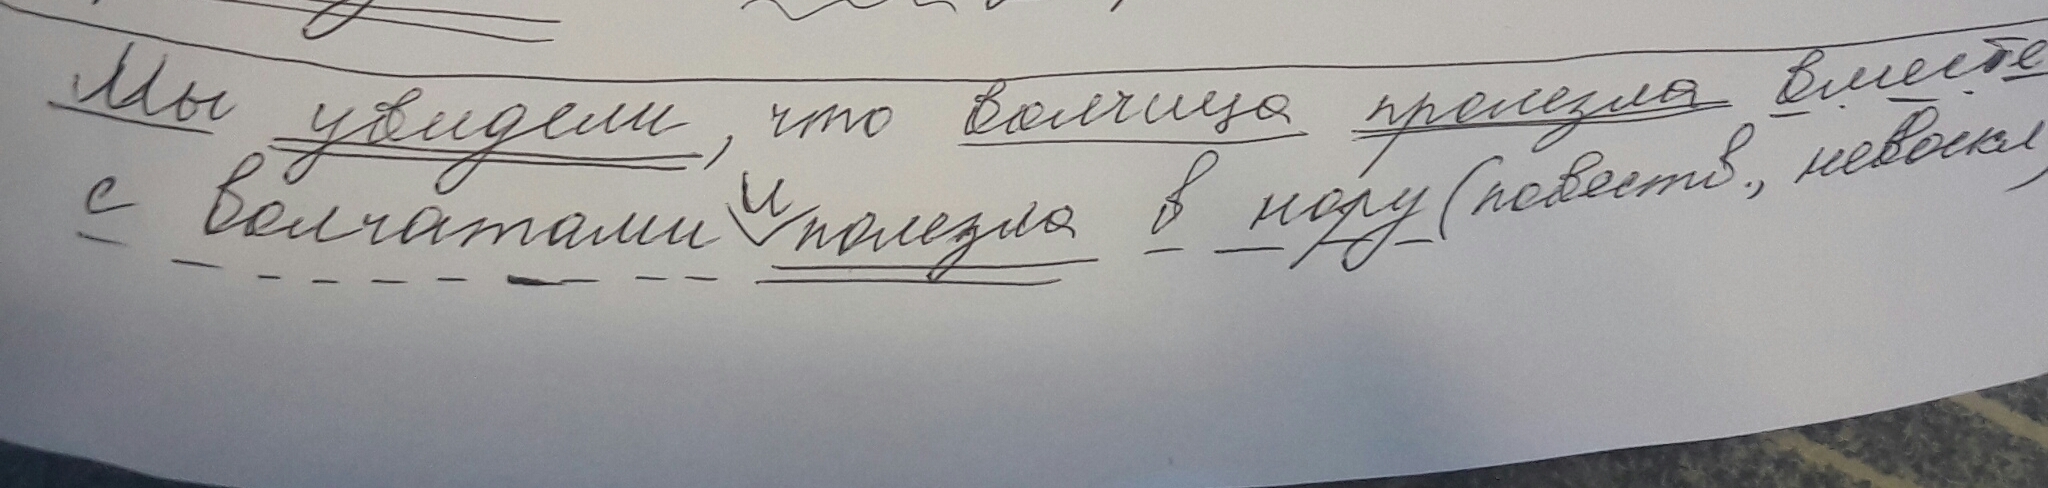 Мы увидели, что волчица пролезла вместе
с волчатами и полезла в нору (повеств., невоскл,